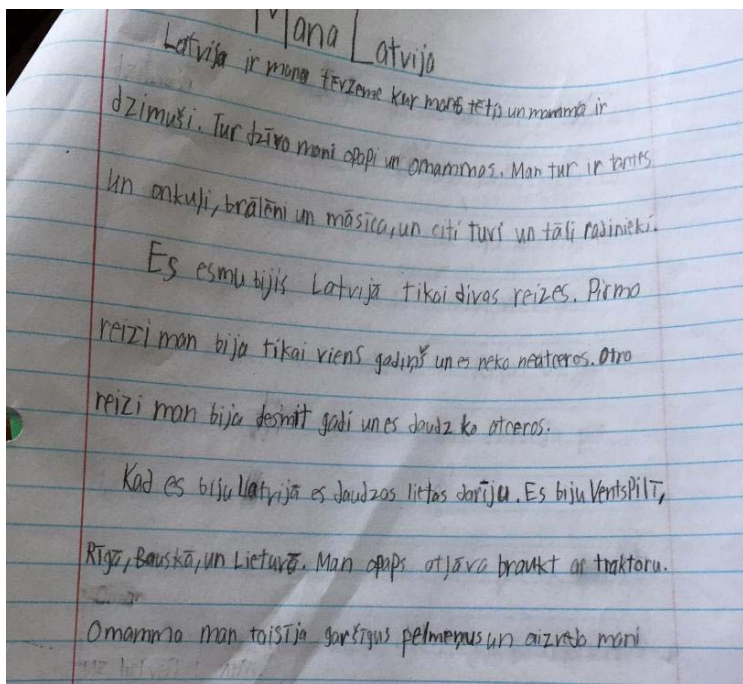 Mana Latvija
Latvija ir mana tēvzeme kur mans tētis un mamma ir
dzimuši. Tur dzīvo mani opapi un omammas. Man tur ir tantes
un onkuļi, brālēni un māsīca, un citi tuvi un tāļi radinieki.
Es esmu bijis Latvijā tikai divas reizes. Pirmo
reizi man bija tikai viens gadiņš un es neko neatceros. Otro
reizi man bija desmit gadi un es daudz ko atceros.
Kad es biju Latvijā es daudzas lietas darīju. Es biju Ventspilī,
Rīgā, Bauskā, un Lietuvā. Man opaps atļāva braukt ar traktoru.
Omamma man taisīja garšīgus pelmeņus un aizveda mani